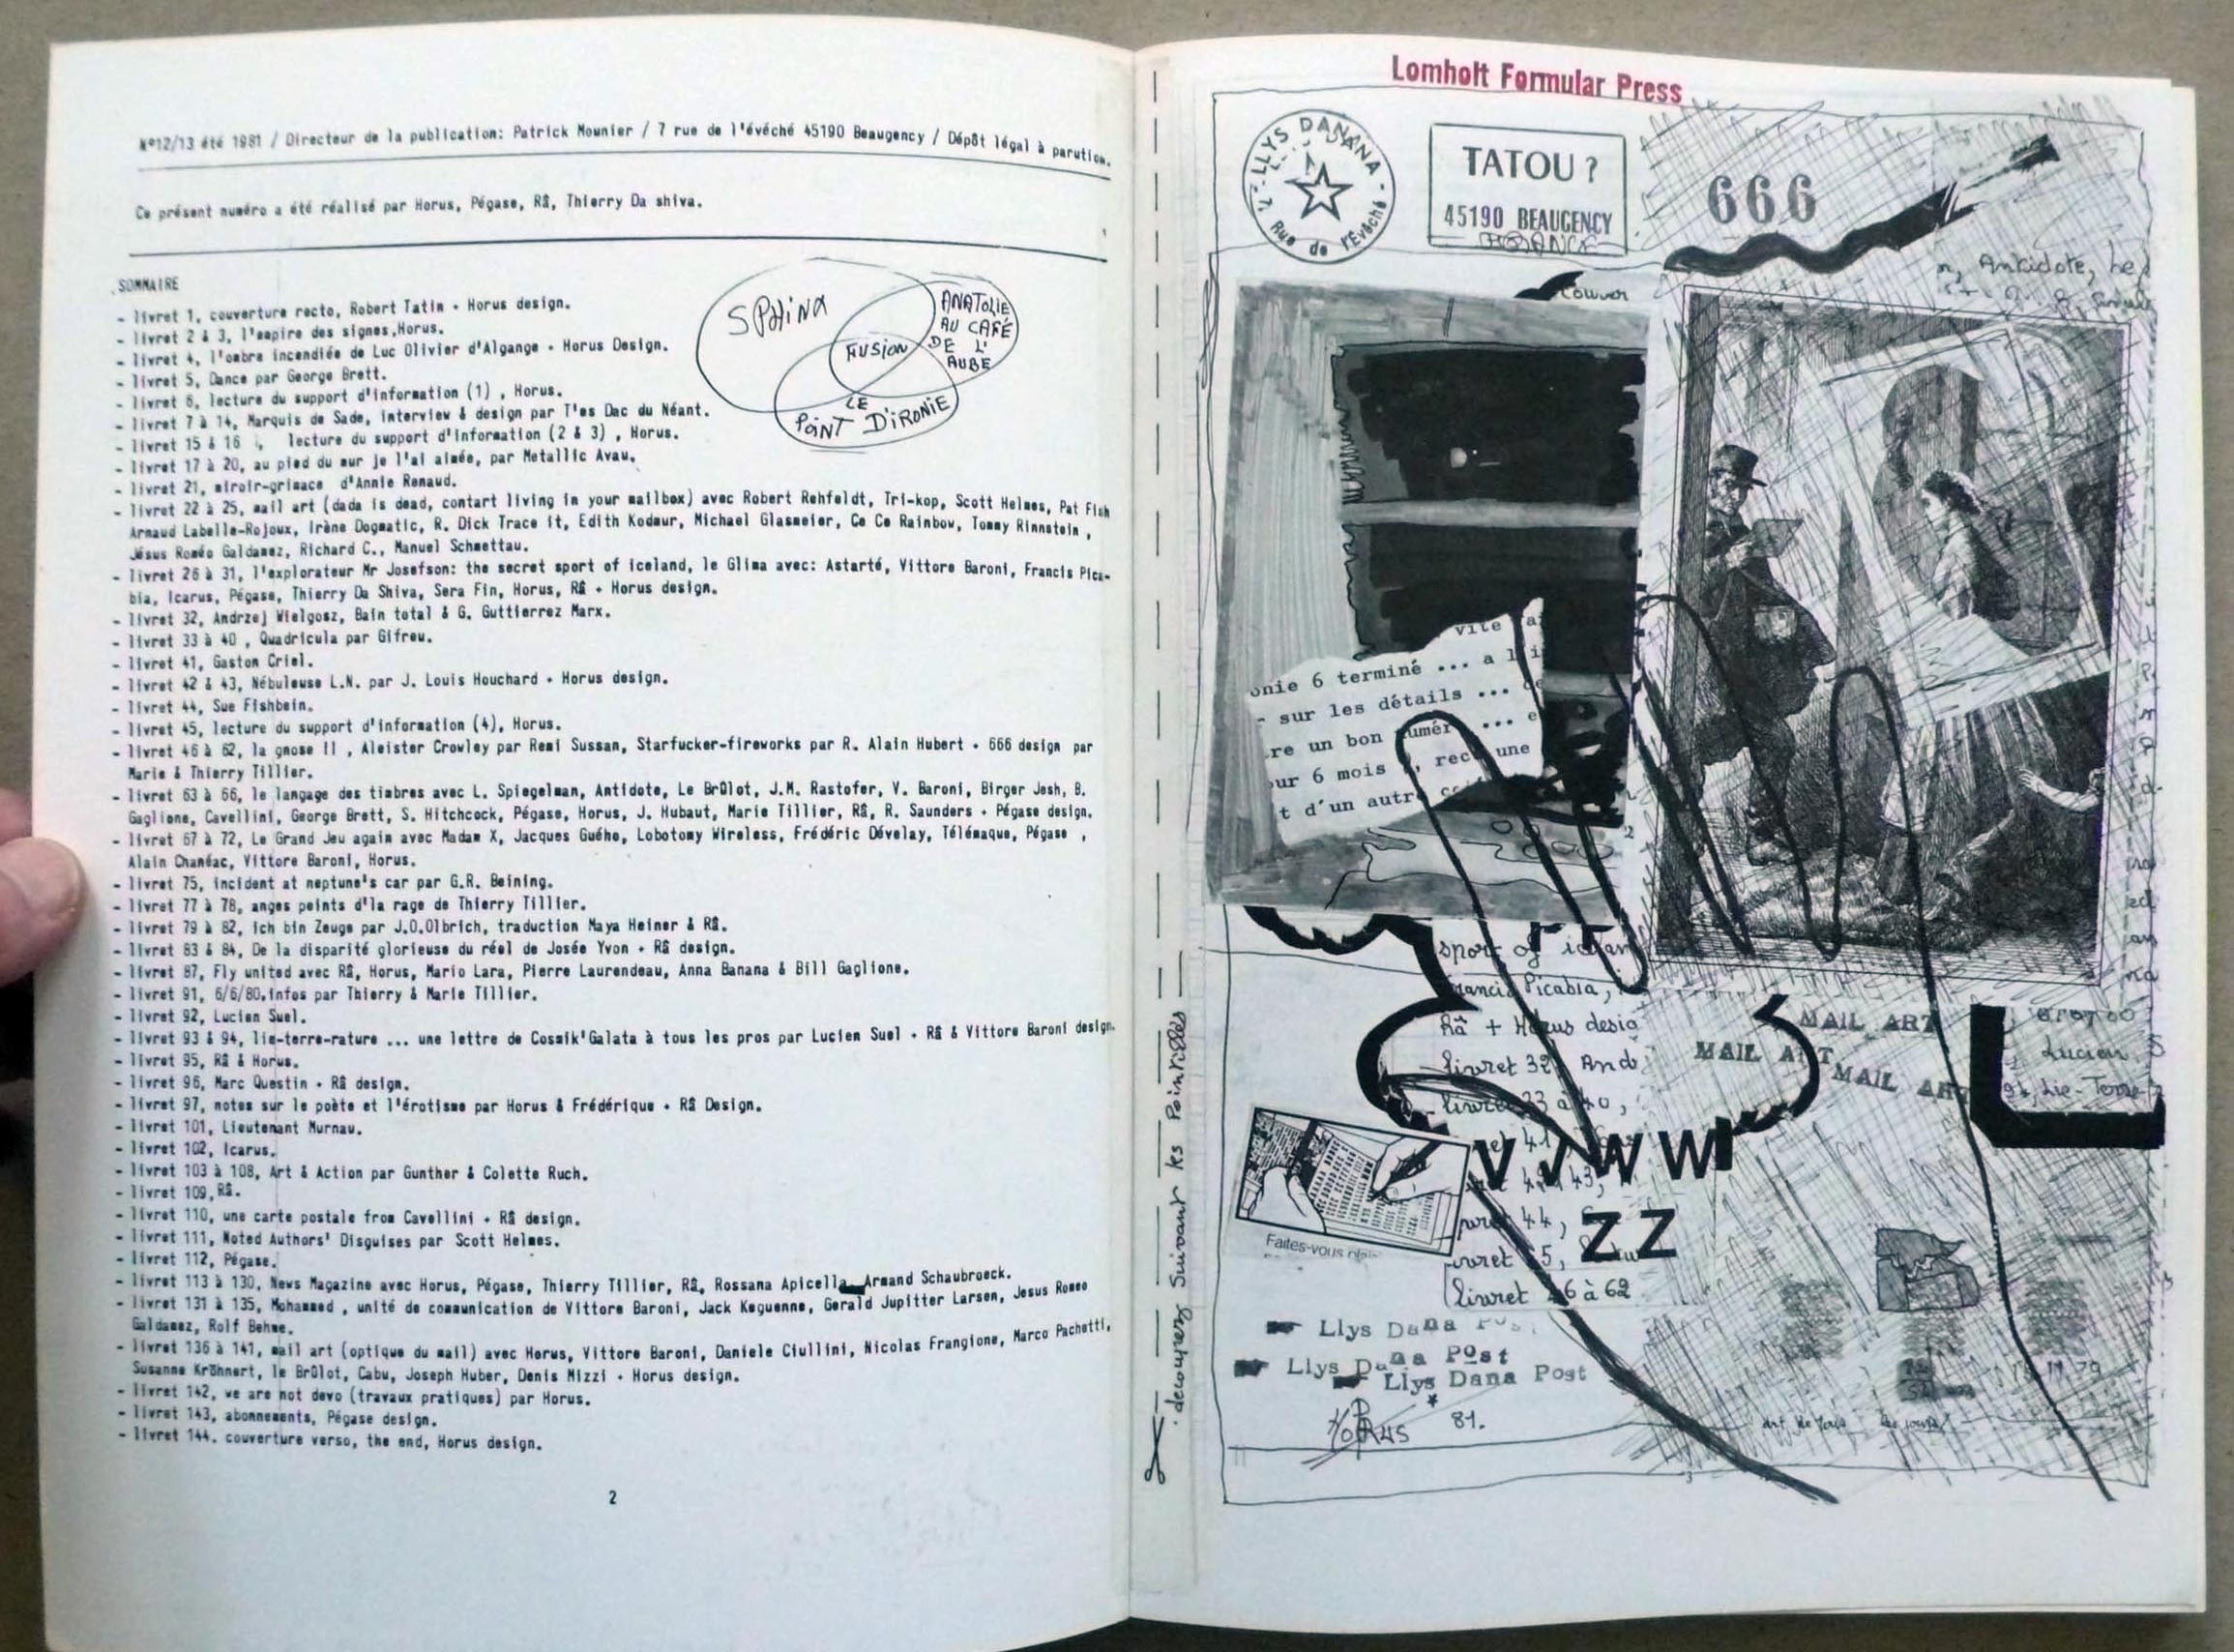 Nº12/13 été 1981 / Directeur de la publication: Patrick Mounier / 7 rue de l'évéché 45190 Beaugency / Dépôt légal à parution.
Ce présent numéro a été réalisé par Horus, Pégase, Râ, Thierry Da shiva.
SOMMAIRE
- livret 1, couverture recto, Robert Tatin + Horus design.
- livret 2 & 3, l'empire des signes,Horus.
- livret 4, l'ombre incendiée de Luc Olivier d'Algange + Horus Design.
- livret 5, Dance par George Brett.
- livret 6, lecture du support d'information (1) , Horus.
- livret 7 à 14, Marquis de Sade, interview & design par T'es Dac du Néant.
- livret 15 & 16 , lecture du support d'information (2 & 3) , Horus.
- livret 17 à 20, au pied du mur je l'ai aimée, par Metallic Avau.
- livret 21, miroir-grimace d'Annie Renaud.
- livret 22 à 25, mail art (dada is dead, contart living in your mailbox) avec Robert Rehfeldt, Tri-kop, Scott Helmes, Pat Fish
Arnaud Labelle-Rojoux, Irène Dogmatic, R. Dick Trace it, Edith Kodmur, Michael Glasmeier, Ce Ce Rainbow, Tommy Rinnstein ,
Jésus Roméo Galdamez, Richard C., Manuel Schmettau.
- livret 26 à 31, l'explorateur Mr Josefson: the secret sport of iceland, le Glima avec: Astarté, Vittore Baroni, Francis Pica-
bia, Icarus, Pégase, Thierry Da Shiva, Sera Fin, Horus, Râ + Horus design.
- livret 32, Andrzej Wielgosz, Bain total & G. Guttierrez Marx.
- livret 33 à 40 , Quadricula par Gifreu.
- livret 41, Gaston Criel.
- livret 42 & 43, Nébuleuse L.N. par J. Louis Houchard + Horus design.
- livret 44, Sue Fishbein.
- livret 45, lecture du support d'information (4), Horus.
- livret 46 à 62, la gnose II , Aleister Crowley par Remi Sussan, Starfucker-fireworks par R. Alain Hubert + 666 design par
Marie & Thierry Tillier.
- livret 63 à 66, le langage des timbres avec L. Spiegelman, Antidote, Le Brûlot, J.M. Rastofer, V. Baroni, Birger Jesh, B.
Gaglione, Cavellini, George Brett, S. Hitchcock, Pégase, Horus, J. Hubaut, Marie Tillier, Râ, R. Saunders + Pégase design.
- livret 67 à 72, Le Grand Jeu again avec Madam X, Jacques Guého, Lobotomy Wireless, Frédéric Dévelay, Télémaque, Pégase ,
Alain Chanéac, Vittore Baroni, Horus.
- livret 75, incident at neptune's car par G.R. Beining.
- livret 77 à 78, anges peints d'la rage de Thierry Tillier.
- livret 79 à 82, ich bin Zeuge par J.O.Olbrich, traduction Maya Heiner & Râ.
- livret 83 & 84, De la disparité glorieuse du réel de Josée Yvon + Râ design.
- livret 87, Fly united avec Râ, Horus, Mario Lara, Pierre Laurendeau, Anna Banana & Bill Gaglione.
- livret 91, 6/6/80,infos par Thierry & Marie Tillier.
- livret 92, Lucien Suel.
- livret 93 & 94, lie-terre-rature ... une lettre de Cosmik'Galata à tous les pros par Lucien Suel + Râ & Vittore Baroni design.
- livret 95, Râ & Horus.
- livret 96, Marc Questin + Râ design.
- livret 97, notes sur le poète et l'érotisme par Horus & Frédérique + Râ Design.
- livret 101, Lieutenant Murnau.
- livret 102, Icarus.
- livret 103 à 108, Art & Action par Gunther & Colette Ruch.
- livret 109, Râ.
- livret 110, une carte postale from Cavellini + Râ design.
- livret 111, Noted Authors' Disguises par Scott Helmes.
- livret 112, Pégase.
- livret 113 à 130, News Magazine avec Horus, Pégase, Thierry Tillier, Râ, Rossana Apicella Armand Schaubroeck.
- livret 131 à 135, Mohammed , unité de communication de Vittore Baroni, Jack Keguenne, Gerald Jupitter Larsen, Jesus Romeo
Galdamez, Rolf Behme.
- livret 136 à 141, mail art (optique du mail) avec Horus, Vittore Baroni, Daniele Ciullini, Nicolas Frangione, Marco Pachetti,
Susanne Kröhnert, le Brûlot, Cabu, Joseph Huber, Denis Mizzi + Horus design.
- livret 142, we are not devo (travaux pratiques) par Horus.
- livret 143, abonnements, Pégase design.
- livret 144. couverture verso, the end, Horus design.
SPHiNX
ANATOLIE
AU CAFÉ
DE L'
AUBE
FUSION
LE
PoiNT D'iRONiE
2
découpez suivant les Pointillés
Lomholt Formular Press
LLYS DANA
7, Rue de l'Evêché
TATOU ?
45190 BEAUGENCY
FRANCE
666
Antidote, Le
couver
vite
onie 6 terminé ... a l'i
sur les détails ...
re un bon numér ... e
our 6 mois , rec une
t d'un autre
sport of ican
rancis Picabia,
Râ + Horus desig
livret 32, And
livret 33 à 40,
44,
livret 46 à 62
MAIL ART
MAIL ART
MAIL ART
Lucien S
Lie-Terre-
V V W W
Z Z
Faites-vous plai
Llys Dana
Llys Dana Post
Llys Dana Post
HORUS 81.